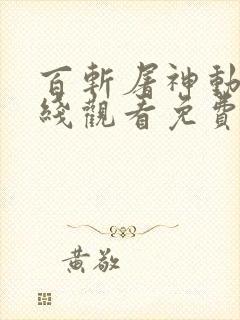 百斬屠神動
綫觀看免費
黄敬